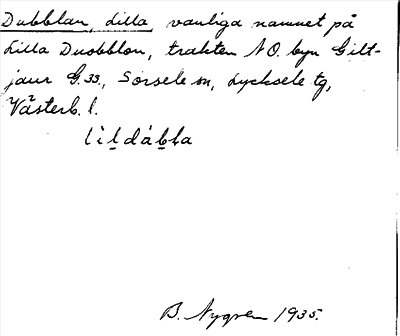 Dubblan, Lilla, vanliga namnet på
Lilla Duobblon, trakten N O. byn Gilt-
jaur G.33, Sorsele sn, Lycksele tg,
Västerb. l.
lìl̲dáb̲la
B. Nygren 1935.